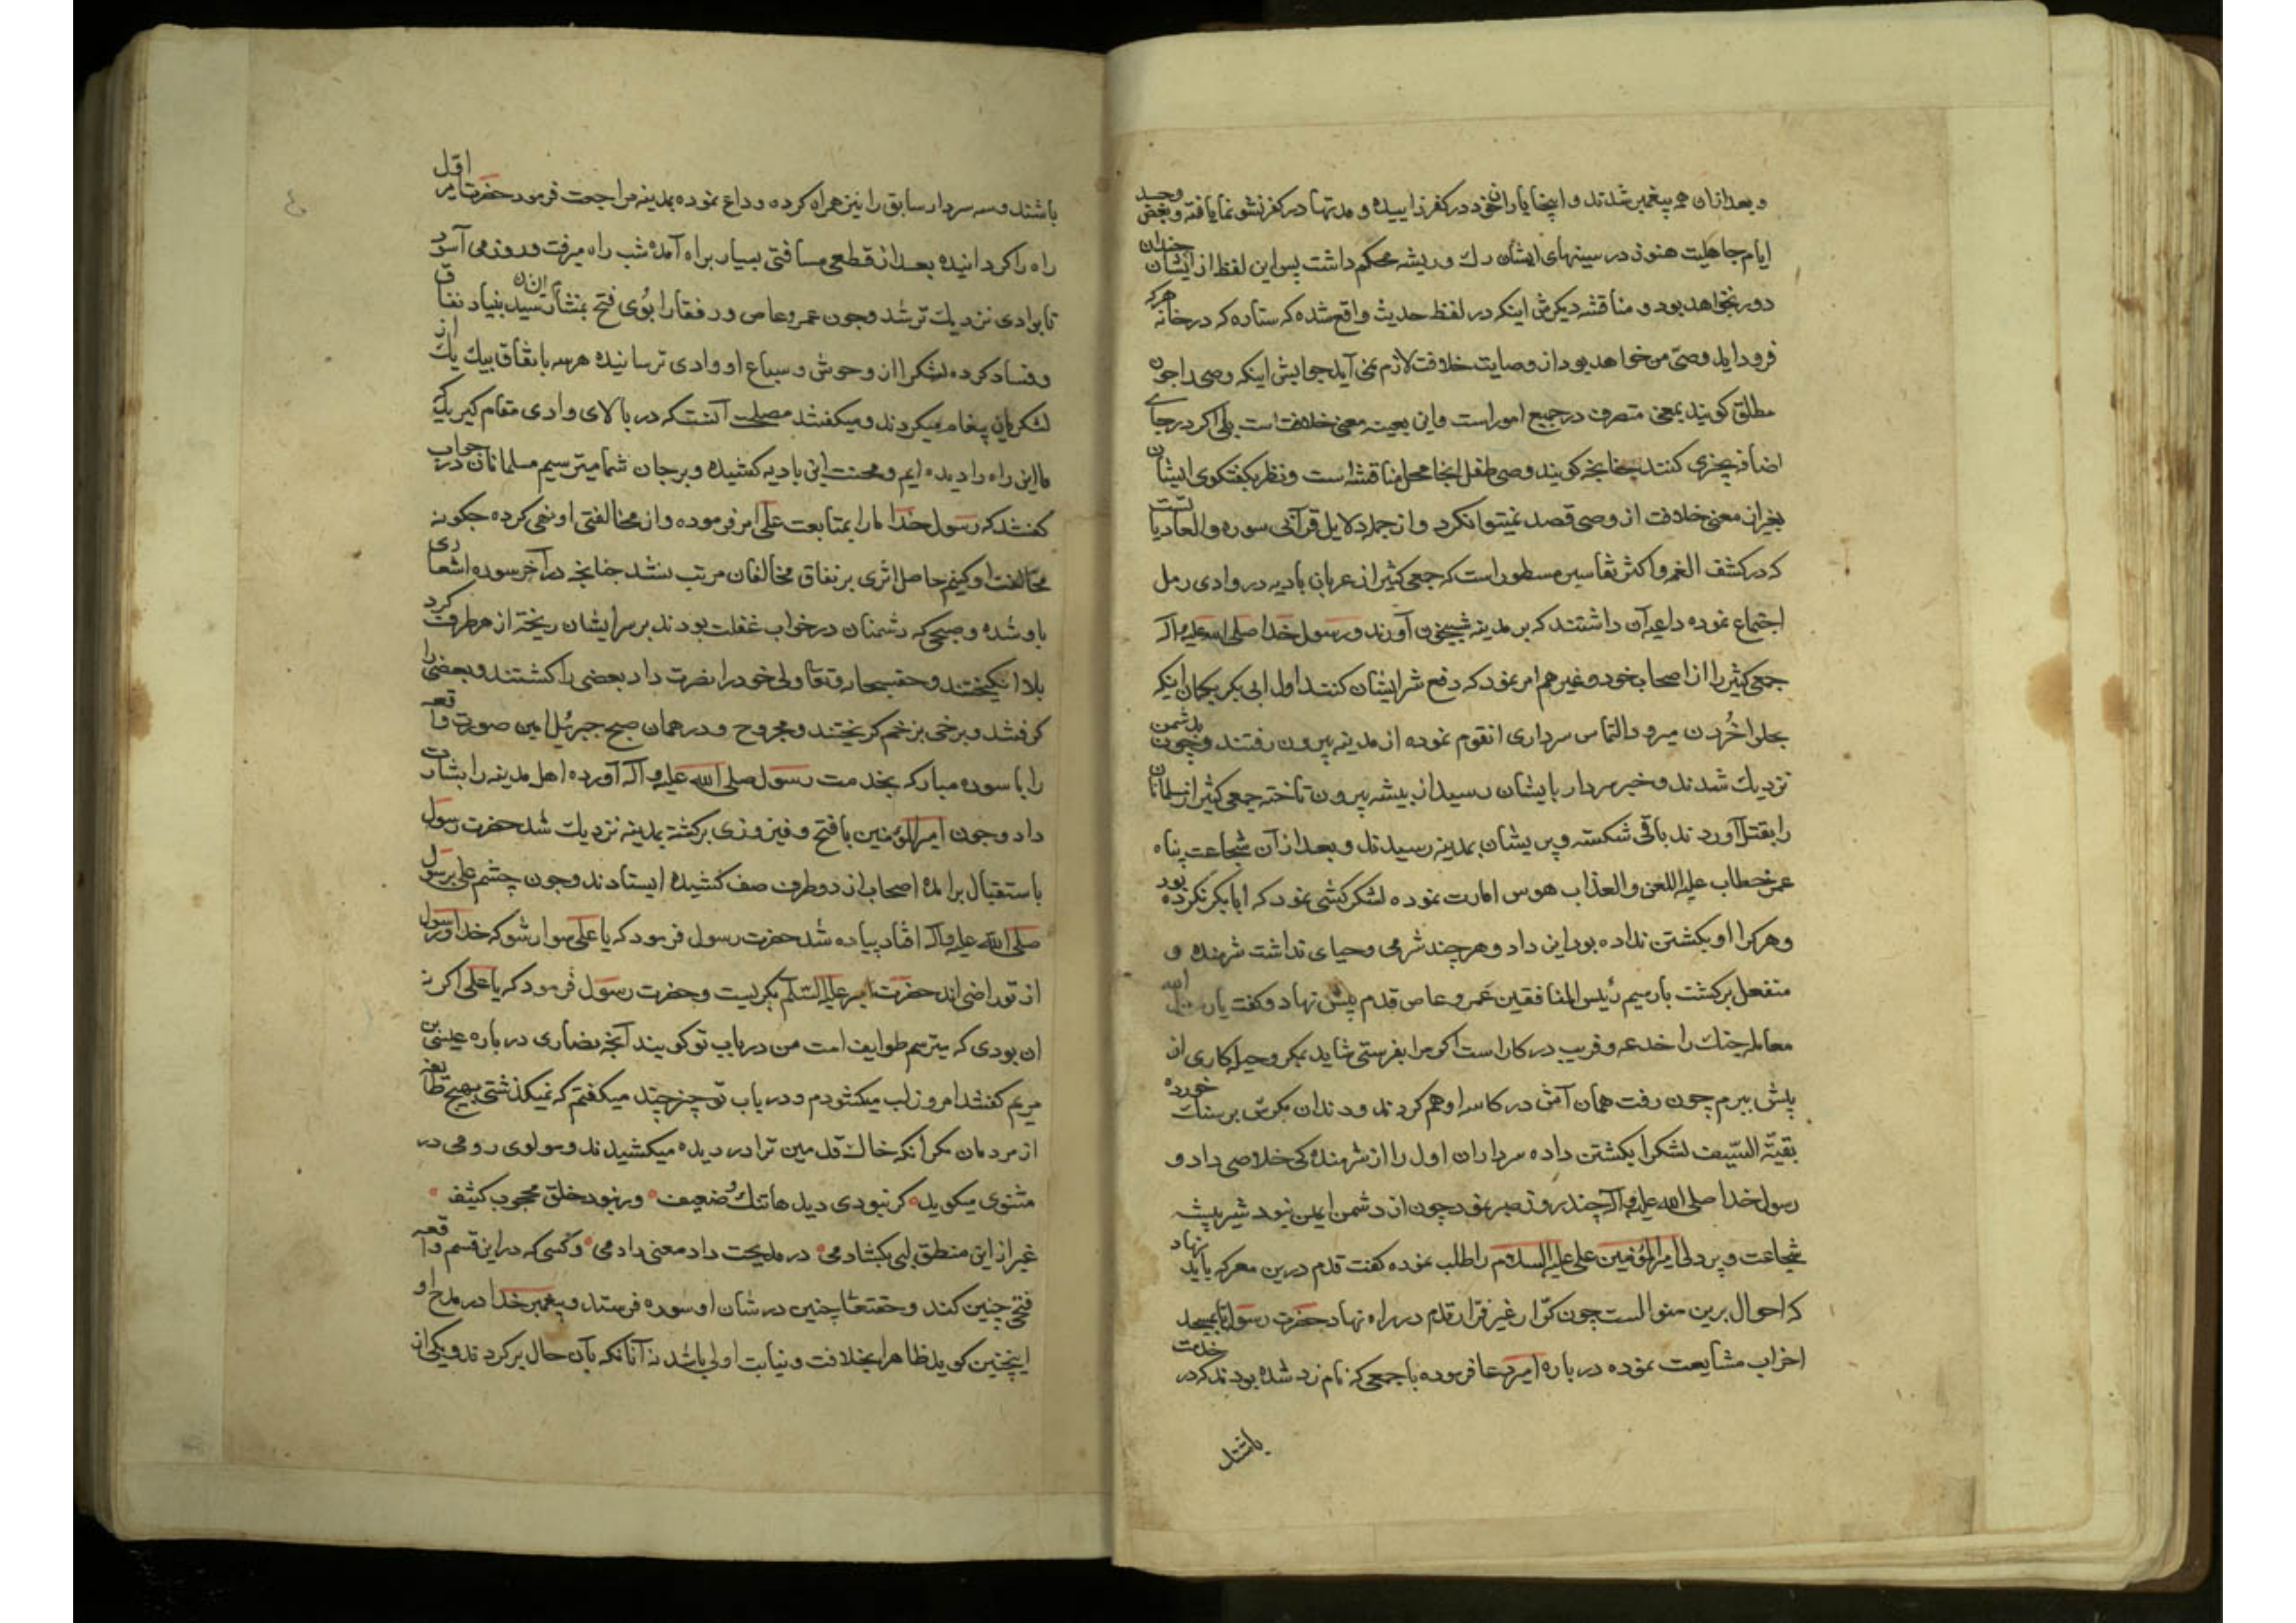 و بعد ازان هم پیغمبر شدند و اینجا یاران خود در کفر زاییده و مدتها در کفر نشو نما یافته و بغض وحسد
ایام جاهلیت هنوز در سینهای ایشان رک و ریشه محکم داشت پس این لفظ از ایشان چندان
دور نخواهد بود و مناقشه دیکرش اینکه در لفظ حدیث واقع شده که ستاره که در خانه هرکه
فرود اید وصی من خواهد بود از وصایت خلافت لازم نمی آید جوابش اینکه وصی را چون
مطلق کویند بمعنی متصرف در جمیع امور است و این بعینه معنی خلافت است بلی اکر در جائی
اضافه بچیزی کنند چنانچه کویند وصی طفل انجا محل مناقشه است و نظر بکفتکوی ایشان
بغیر از معنی خلافت از وصی قصد نمیتوان کرد و از جمله دلایل قرآنی سوره والعادیات است
که در کشف الغمه و اکثر تفاسیر مسطور است که جمعی کثیر از عربان بادیه در وادی رمل
اجتماع نموده داعیه آن داشتند که بر مدینه شبیخون آورند و رسول خدا صلی الله علیه و آله
جمعی کثیر را از اصحاب خود و غیرهم امر نمود که دفع شر ایشان کنند اول ابی بکر بکمان اینکه
بحلوا خُردن میرود التماس سرداری انقوم نموده از مدینه بیرون رفتند و چون بدشمن
نزدیک شدند و خبر سردار بایشان رسید از بیشه بیرون تاخته جمعی کثیر از مسلمانان
را بقتل آوردند باقی شکسته و پریشان بمدینه رسیدند و بعد از آن شجاعت پناه
عمر خطاب علیه اللعن والعذاب هوس امارت نموده لشکر کشی نمود که ابا بکر نکرده بود
و هر کرا او بکشتن نداده بود این داد و هر چند شرمی و حیای نداشت شرمنده و
منفعل برکشت بار سیم رئیس المنافقین عمرو عاص قدم پیش نهاد و کفت یا رسول الله
معامله جنک را خدعه و فریب در کار است اکر مرا بفرستی شاید بمکر و حیله کاری از
پیش ببرم چون رفت همان آش در کاسه او هم کردند و دندان مکرش بر سنک خورده
بقیّة السّیف لشکر ا بکشتن داده سرداران اول را از شرمندکی خلاصی داد و
رسول خدا صلی الله علیه و آله چند روز صبر نمود چون از دشمن ایمن نبود شیر بیشه
شجاعت و پر دلی امیرالمؤمنین علی علیه السلام را طلب نموده کفت قدم درین معرکه باید نهاد
که احوال برین منوالست چون کرّار غیر فرّار قدم در راه نهاد حضرت رسول تا بمسجد
احزاب مشایعت نموده در باره امیر دعا فرموده با جمعی که نام زد شده بودند که در خدمت
باشند
باشند و سه سردار سابق را نیز همراه کرده وداع نموده بمدینه مراجعت فرمود حضرت امیر اول
راه را کردانیده بعد از قطعی مسافتی بسیار براه آمده شب راه میرفت و روز می آسود
تا بوادی نزدیک تر شد و چون عمرو عاص و رفقا را بُوی فتح بمشام رسید بنیاد نفاق
و فساد کرده لشکر را از وحوش و سباع او وادی ترسانیده هر سه باتفاق بیک یک از
لشکریان پیغام میکردند و میکفتند مصلحت آنست که در بالای وادی مقام کیریم که
ما این راه را دیده ایم و محنت این بادیه کشیده و بر جان شما میترسیم مسلمانان در جواب
کفتند که رسول خدا ما را بمتابعت علی امر فرموده و از مخالفتی او نهی کرده چکونه
مخالفت او کنیم حاصل اثری بر نفاق مخالفان مرتب نشد چنانچه در آخر سوره اشعاری
باو شده و صبحی که دشمنان در خواب غفلت بودند بر سر ایشان ریخته از هر طرف کرد
بلا انکیختند و حقسبحانه وتعا ولی خود را نصرت داد بعضی را کشتند و بعضی را
کرفتند و برخی بزخم کریختند و مجروح و در همان صبح جبرئیل امین صورت واقعه
را با سوره مبارکه بخدمت رسول صلی الله علیه و آله آورده اهل مدینه را بشارت
داد و چون امیرالمؤمنین با فتح و فیروزی برکشته بمدینه نزدیک شد حضرت رسول
باستقبال برامده اصحاب از دو طرف صف کشیده ایستادند و چون چشم علی بر رسول
صلی الله علیه و آله افتاد پیاده شد حضرت رسول فرمود که یا علی سوار شو که خدا و رسول
از تو راضی اند حضرت امیر علیه السّلم بکریست و حضرت رسول فرمود که یا علی اکر نه
ان بودی که میترسم طوایف امت من در باب تو کویند آنچه نصاری در باره عیسی بن
مریم کفتند امروز لب میکشودم و در باب تو چیزی چند میکفتم که نمیکذشتی بهیچ طایفه
از مردمان مکر انکه خاک قدمین ترا در دیده میکشیدند و مولوی رومی در
مثنوی میکوید کر نبودی دیدها تنک و ضعیف ور نبود خلق محجوب کثیف
غیر از این منطق لبی بکشادمی در مدیحت داد معنی دادمی و کسی که در این قسم واقعه
فتحی چنین کند و حقتعا چنین در شان او سوره فرستد و پیغمبر خدا در مدح او
اینچنین کوید ظاهرا بخلافت و نیابت اولی باشد نه آنانکه بآن حال برکردند و یکی از